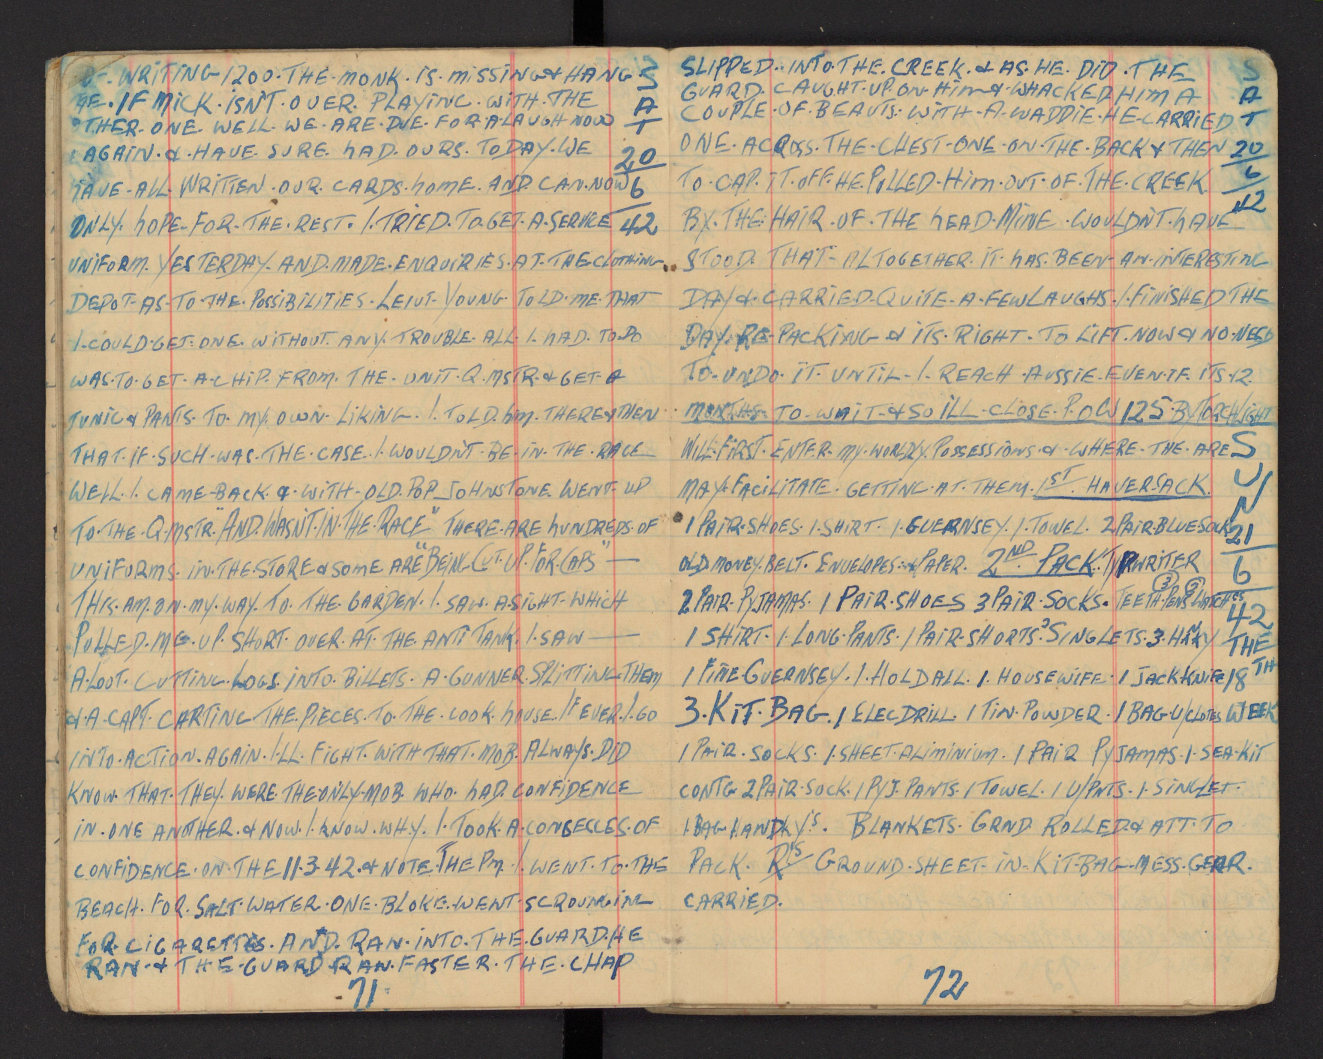 WRITING 1200. THE MONK. IS. MISSING & HANG
ME. IF MICK. ISN'T. OVER. PLAYING. WITH. THE
OTHER. ONE. WELL. WE. ARE. DUE. FOR. A. LAUGH NOW
AGAIN. & HAVE. SURE. HAD. OURS. TODAY. WE
HAVE. ALL. WRITTEN. OUR. CARDS. HOME. AND. CAN. NOW
ONLY. HOPE. FOR. THE. REST. I. TRIED. TO. GET. A. SERVICE
UNIFORM. YESTERDAY. AND. MADE. ENQUIRIES. AT. THE CLOTHING
DEPOT. AS. TO. THE. POSSIBILITIES. LEIUT. YOUNG. TOLD. ME. THAT
I. COULD. GET. ONE. WITHOUT. ANY. TROUBLE. ALL. I. HAD. TO. DO
WAS. TO. GET. A. CHIP. FROM. THE. UNIT. Q. MSTR. & GET. A
TUNIC & PANTS. TO. MY. OWN. LIKING. I. TOLD. HIM. THERE & THEN
THAT. IF. SUCH. WAS. THE. CASE. I. WOULDN'T. BE. IN. THE. RACE
WELL. I. CAME. BACK. & WITH. OLD. POP. JOHNSTONE. WENT. UP
TO. THE. Q. MSTR. "AND. WASN'T. IN. THE. RACE" THERE. ARE. HUNDREDS. OF
UNIFORMS. IN. THE. STORE & SOME ARE "BEING. CUT. UP. FOR. CAPS" —
THIS. AM. ON. MY. WAY. TO. THE. GARDEN. I. SAW. A. SIGHT. WHICH
PULLED. ME. UP. SHORT. OVER. AT. THE. ANTI TANK. I. SAW —
A. LOOT. CUTTING. LOGS. INTO. BILLETS. A. GUNNER. SPLITTING. THEM
& A. CAPT. CARTING. THE. PIECES. TO. THE. COOK. HOUSE. IF EVER. I. GO
INTO. ACTION. AGAIN. I'LL. FIGHT. WITH. THAT. MOB. ALWAYS. DID
KNOW. THAT. THEY. WERE. THE. ONLY. MOB. WHO. HAD. CONFIDENCE
IN. ONE ANOTHER. & NOW. I. KNOW. WHY. I. TOOK. A. OF
CONFIDENCE. ON. THE 11.3.42. & NOTE. THE PM. I. WENT. TO. THE
BEACH. FOR. SALT. WATER. ONE. BLOKE. WENT. SCROUNGING
FOR. CIGARETTES. AND. RAN. INTO. THE. GUARD. HE
RAN. & THE. GUARD. RAN. FASTER. THE. CHAP
S
A
T
20
6
42
71
SLIPPED. INTO. THE. CREEK. & AS. HE. DID. THE
GUARD. CAUGHT. UP. ON. HIM & WHACKED HIM A
COUPLE. OF. BEAUTS. WITH. A. WADDIE. HE. CARRIED
ONE. ACROSS. THE. CHEST. ONE. ON. THE. BACK & THEN
TO. CAP. IT. OFF HE. PULLED. HIM. OUT. OF. THE. CREEK
BY. THE. HAIR. OF. THE. HEAD. MINE. WOULDN'T. HAVE
STOOD. THAT. ALTOGETHER. IT. HAS. BEEN. AN. INTERESTING
DAY & CARRIED. QUITE. A. FEW LAUGHS. I. FINISHED THE
DAY. RE. PACKING. & ITS. RIGHT. TO. LIFT. NOW & NO. NEED
TO. UNDO. IT. UNTIL. I. REACH. AUSSIE. EVEN. IF. ITS 12
MONTHS. TO. WAIT. & SO ILL. CLOSE. P.OW 125. BY TORCHLIGHT
WILL. FIRST. ENTER. MY. WORLDLY. POSSESSIONS & WHERE. THE. ARE
MAY. FACILITATE. GETTING. AT. THEM. 1ST HAVERSACK.
1 PAIR. SHOES. 1. SHIRT. 1. GUERNSEY. 1. TOWEL. 2 PAIR. BLUE SOCKS
OLD MONEY. BELT. ENVELOPES. & PAPER. 2ND PACK. TYPWRITER
2 PAIR. PYJAMAS. 1 PAIR. SHOES 3 PAIR. SOCKS. TEETH (3) PENS (2) WATCHES
1 SHIRT. 1. LONG. PANTS. 1 PAIR. SHORTS. 2 SINGLETS. 3. HNKY
1 FINE GUERNSEY. 1. HOLDALL. 1. HOUSEWIFE. 1 JACK KNIFE
3. KIT. BAG. 1 ELEC DRILL. 1 TIN. POWDER. 1 BAG. U/CLOTES
1 PAIR. SOCKS. 1. SHEET ALIMINIUM. 1 PAIR PYJAMAS. 1. SEA. KIT
CONTG. 2 PAIR. SOCK. 1 PYJ. PANTS. 1 TOWEL. 1 U/PNTS. 1. SINGLET.
1 BAG HANDKY'S. BLANKETS. GRND ROLLED & ATT. TO
PACK. GROUND. SHEET. IN. KIT. BAG. MESS. GEAR.
CARRIED.
S
A
T
20
6
42
S
U
N
21
6
42
THE
18TH
WEEK
72